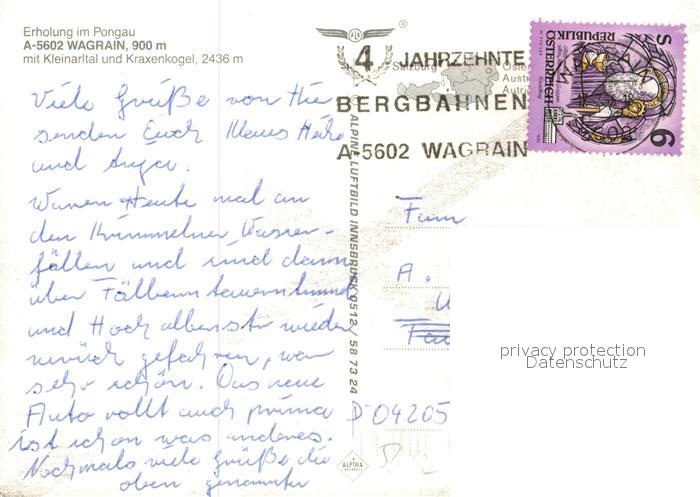 Erholung im Pongau
A-5602 WAGRAIN, 900 m
mit Kleinarltal und Kraxenkogel, 2436 m
Viele Grüße von Hie
senden Euch Klaus Heike
und Anja.
Waren Heute mal an
den Krimmelner Wasser-
fällen und sind dann
über Felberntauerntunnel
und Hochalbenstr wieder
zurück gefahren, war
sehr schön. Das neue
Auto rollt auch prima
ist schon was anderes.
Nochmals viele Grüße die
oben genannten
ALPINE LUFTBILD INNSBRUCK 0512 / 58 73 24
ALPINA
®
4 JAHRZEHNTE
BERGBAHNEN
A-5602 WAGRAIN
Salzburg
REPUBLIK
ÖSTERREICH
S 6
Fam
A.
D 04205
privacy protection
Datenschutz